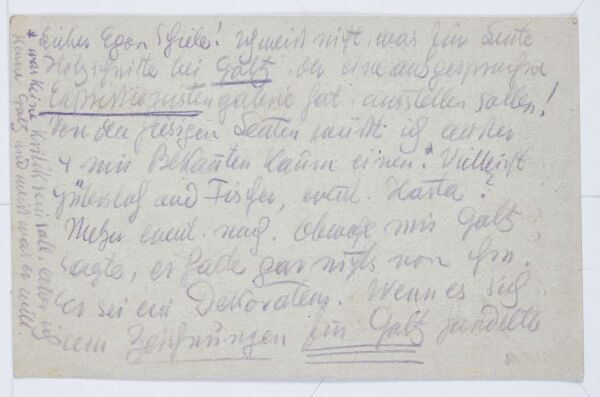 Lieber Egon Schiele! Ich weiß nicht, was für Leute
Holzschnitte bei Goltz, der eine ausgesprochene
Expressionistengalerie hat, ausstellen sollen!
Von den hiesigen Leuten wüßte ich außer
4 mir Bekannten kaum einen.* Vielleicht
Gütersloh und Fischer, event. Harta?
Mehr event. noch. Obwohl mir Goltz
sagte, er halte gar nichts von ihm.
Er sei ein Dekorateur. Wenn es sich
um Zeichnungen für Goltz handelte
* was keine Kritik sein soll. aber ich
kenne Goltz und weiß was er will.